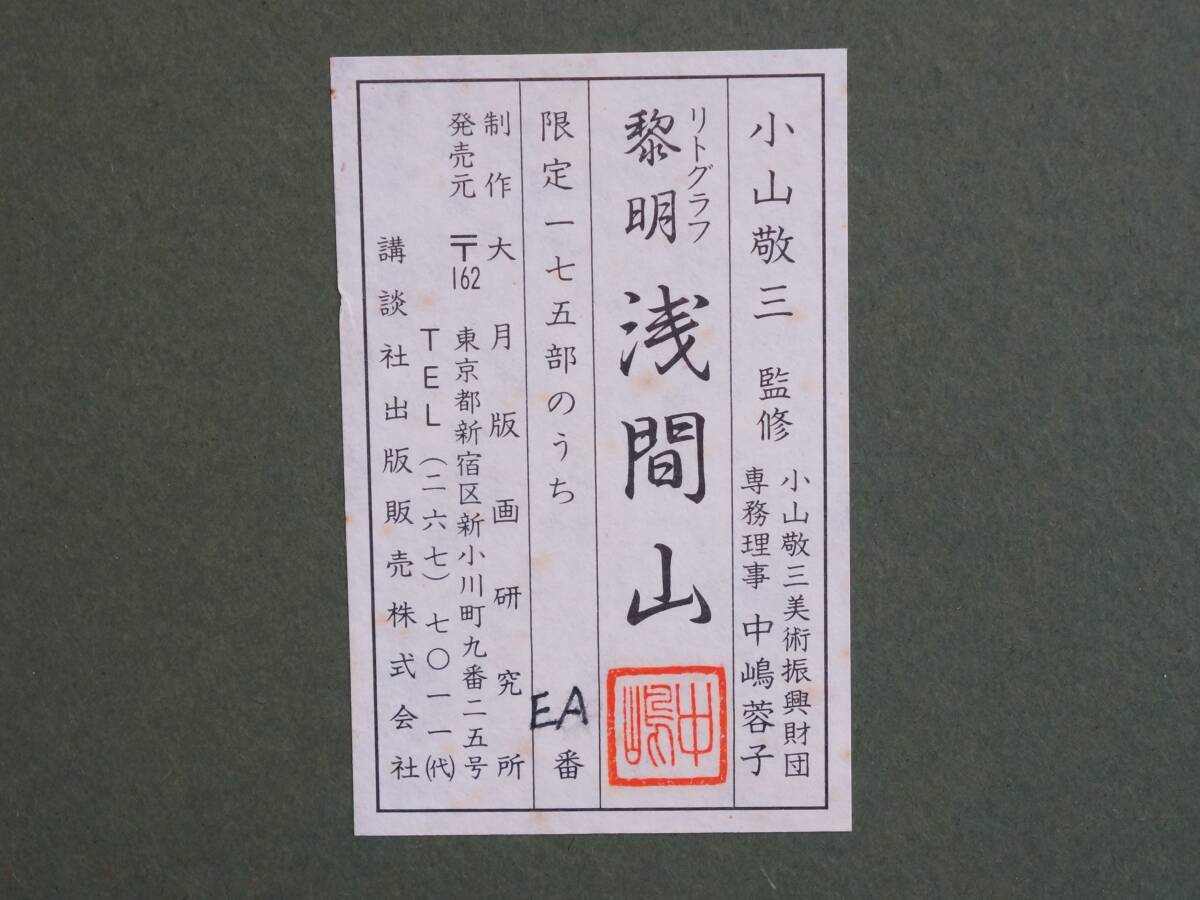 小山敬三 監修
小山敬三美術振興財団
専務理事 中嶋蓉子
リトグラフ
黎明浅間山
中嶋
限定一七五部のうち EA 番
制作 大月版画研究所
発売元 〒162 東京都新宿区新小川町九番二五号
TEL (二六七) 七〇一一(代)
講談社出版販売株式会社